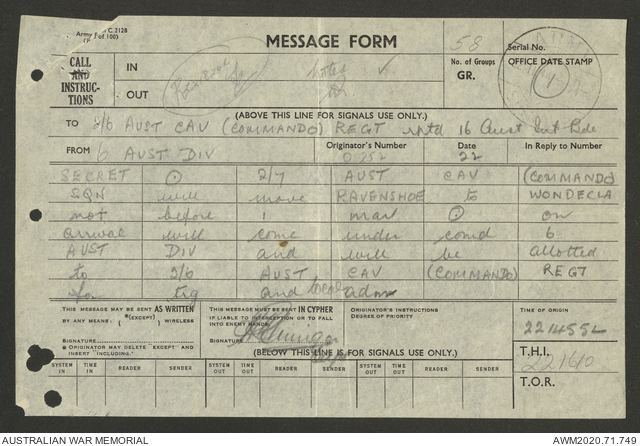 Army Form C.2128
MESSAGE FORM
58
Serial No.
CALL AND INSTRUCTIONS
IN
OUT
No. of Groups
GR.
OFFICE DATE STAMP
(ABOVE THIS LINE FOR SIGNALS USE ONLY.)
TO 2/6 AUST CAV (COMMANDO) REGT rptd 16 Aust Inf Bde
FROM 6 AUST DIV
Originator's Number
Date
22
In Reply to Number
SECRET ⊙ 2/7 AUST CAV (COMMANDO)
SQN will move RAVENSHOE to WONDECLA
not before 1 mar ⊙ on
arrival will come under comd 6
AUST DIV and will be allotted
to 2/6 AUST CAV (COMMANDO) REGT
for trg and local adm
THIS MESSAGE MAY BE SENT AS WRITTEN
BY ANY MEANS. *(EXCEPT) WIRELESS
SIGNATURE
* ORIGINATOR MAY DELETE "EXCEPT" AND INSERT "INCLUDING."
THIS MESSAGE MUST BE SENT IN CYPHER
IF LIABLE TO INTERCEPTION OR TO FALL
INTO ENEMY HANDS.
SIGNATURE
ORIGINATOR'S INSTRUCTIONS
DEGREE OF PRIORITY
TIME OF ORIGIN
221455L
(BELOW THIS LINE IS FOR SIGNALS USE ONLY.)
T.H.I.
221610
T.O.R.
SYSTEM IN TIME IN READER SENDER SYSTEM OUT TIME OUT READER SENDER SYSTEM OUT TIME OUT READER SENDER
AUSTRALIAN WAR MEMORIAL
AWM2020.71.749